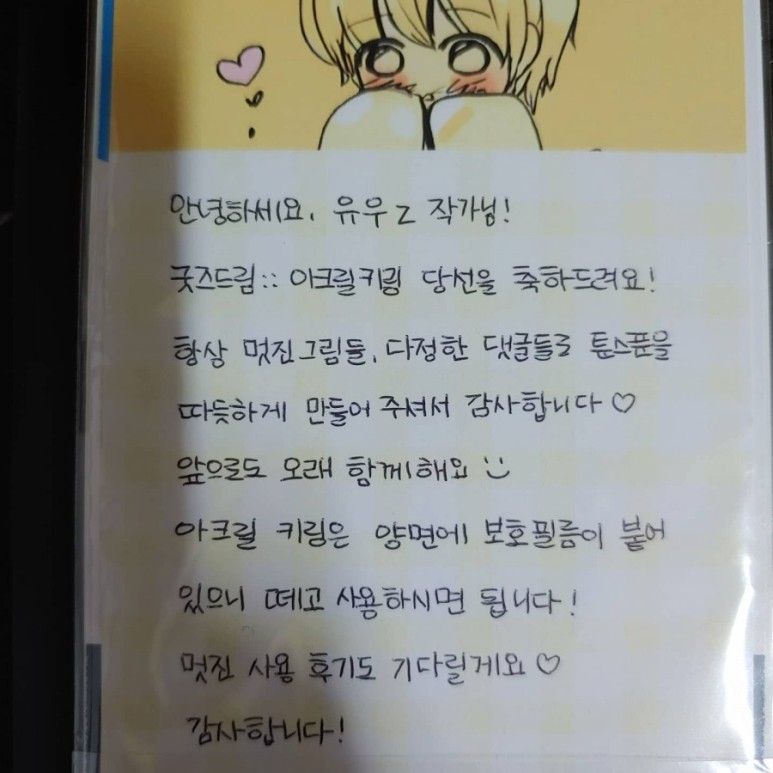 안녕하세요, 유우z 작가님!
굿즈드림:: 아크릴키링 당선을 축하드려요!
항상 멋진그림들, 다정한 댓글들로 툰스푼을
따듯하게 만들어주셔서 감사합니다♡
앞으로도 오래 함께해요 :)
아크릴 키링은 양면에 보호필름이 붙어
있으니 떼고 사용하시면 됩니다!
멋진 사용 후기도 기다릴게요♡
감사합니다!